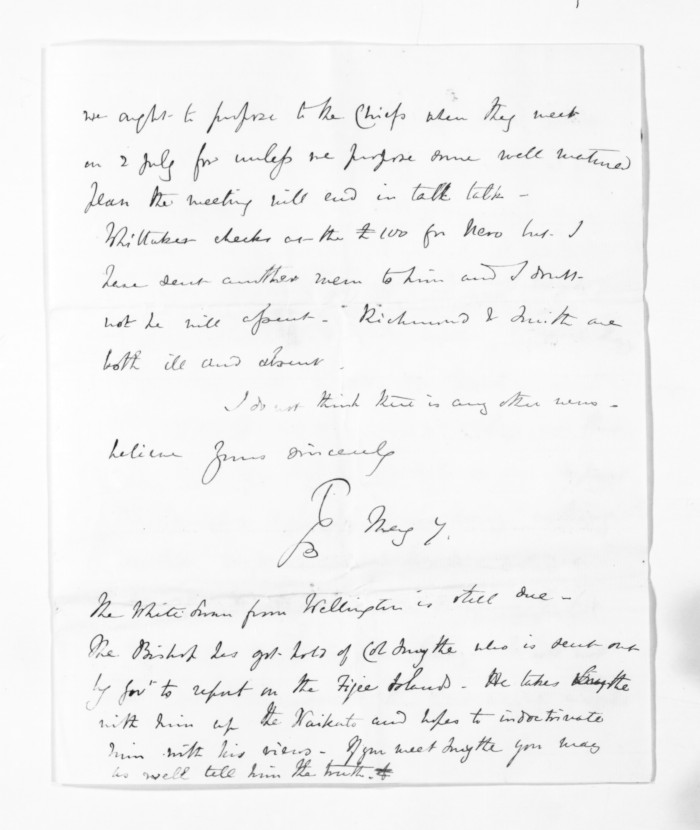 we ought to propose to the Chiefs when they meet
on 2 July for unless we propose some well matured
plan the meeting will end in talk talk -
Whittaker checks at the £100 for Nero but I
have sent another mem to him and I doubt
not he will assent - Richmond & Smith are
both ill and absent.
I do not think there is any other news -
believe yours sincerely
The White Swan from Wellington is still due -
The Bishop has got hold of Col Smythe who is sent out
by Govt to report on the Fijee Islands - He takes Smythe
with him up the Waikato and hopes to indoctrinate
him with his views - If you meet Smythe you may
as well tell him the truth.